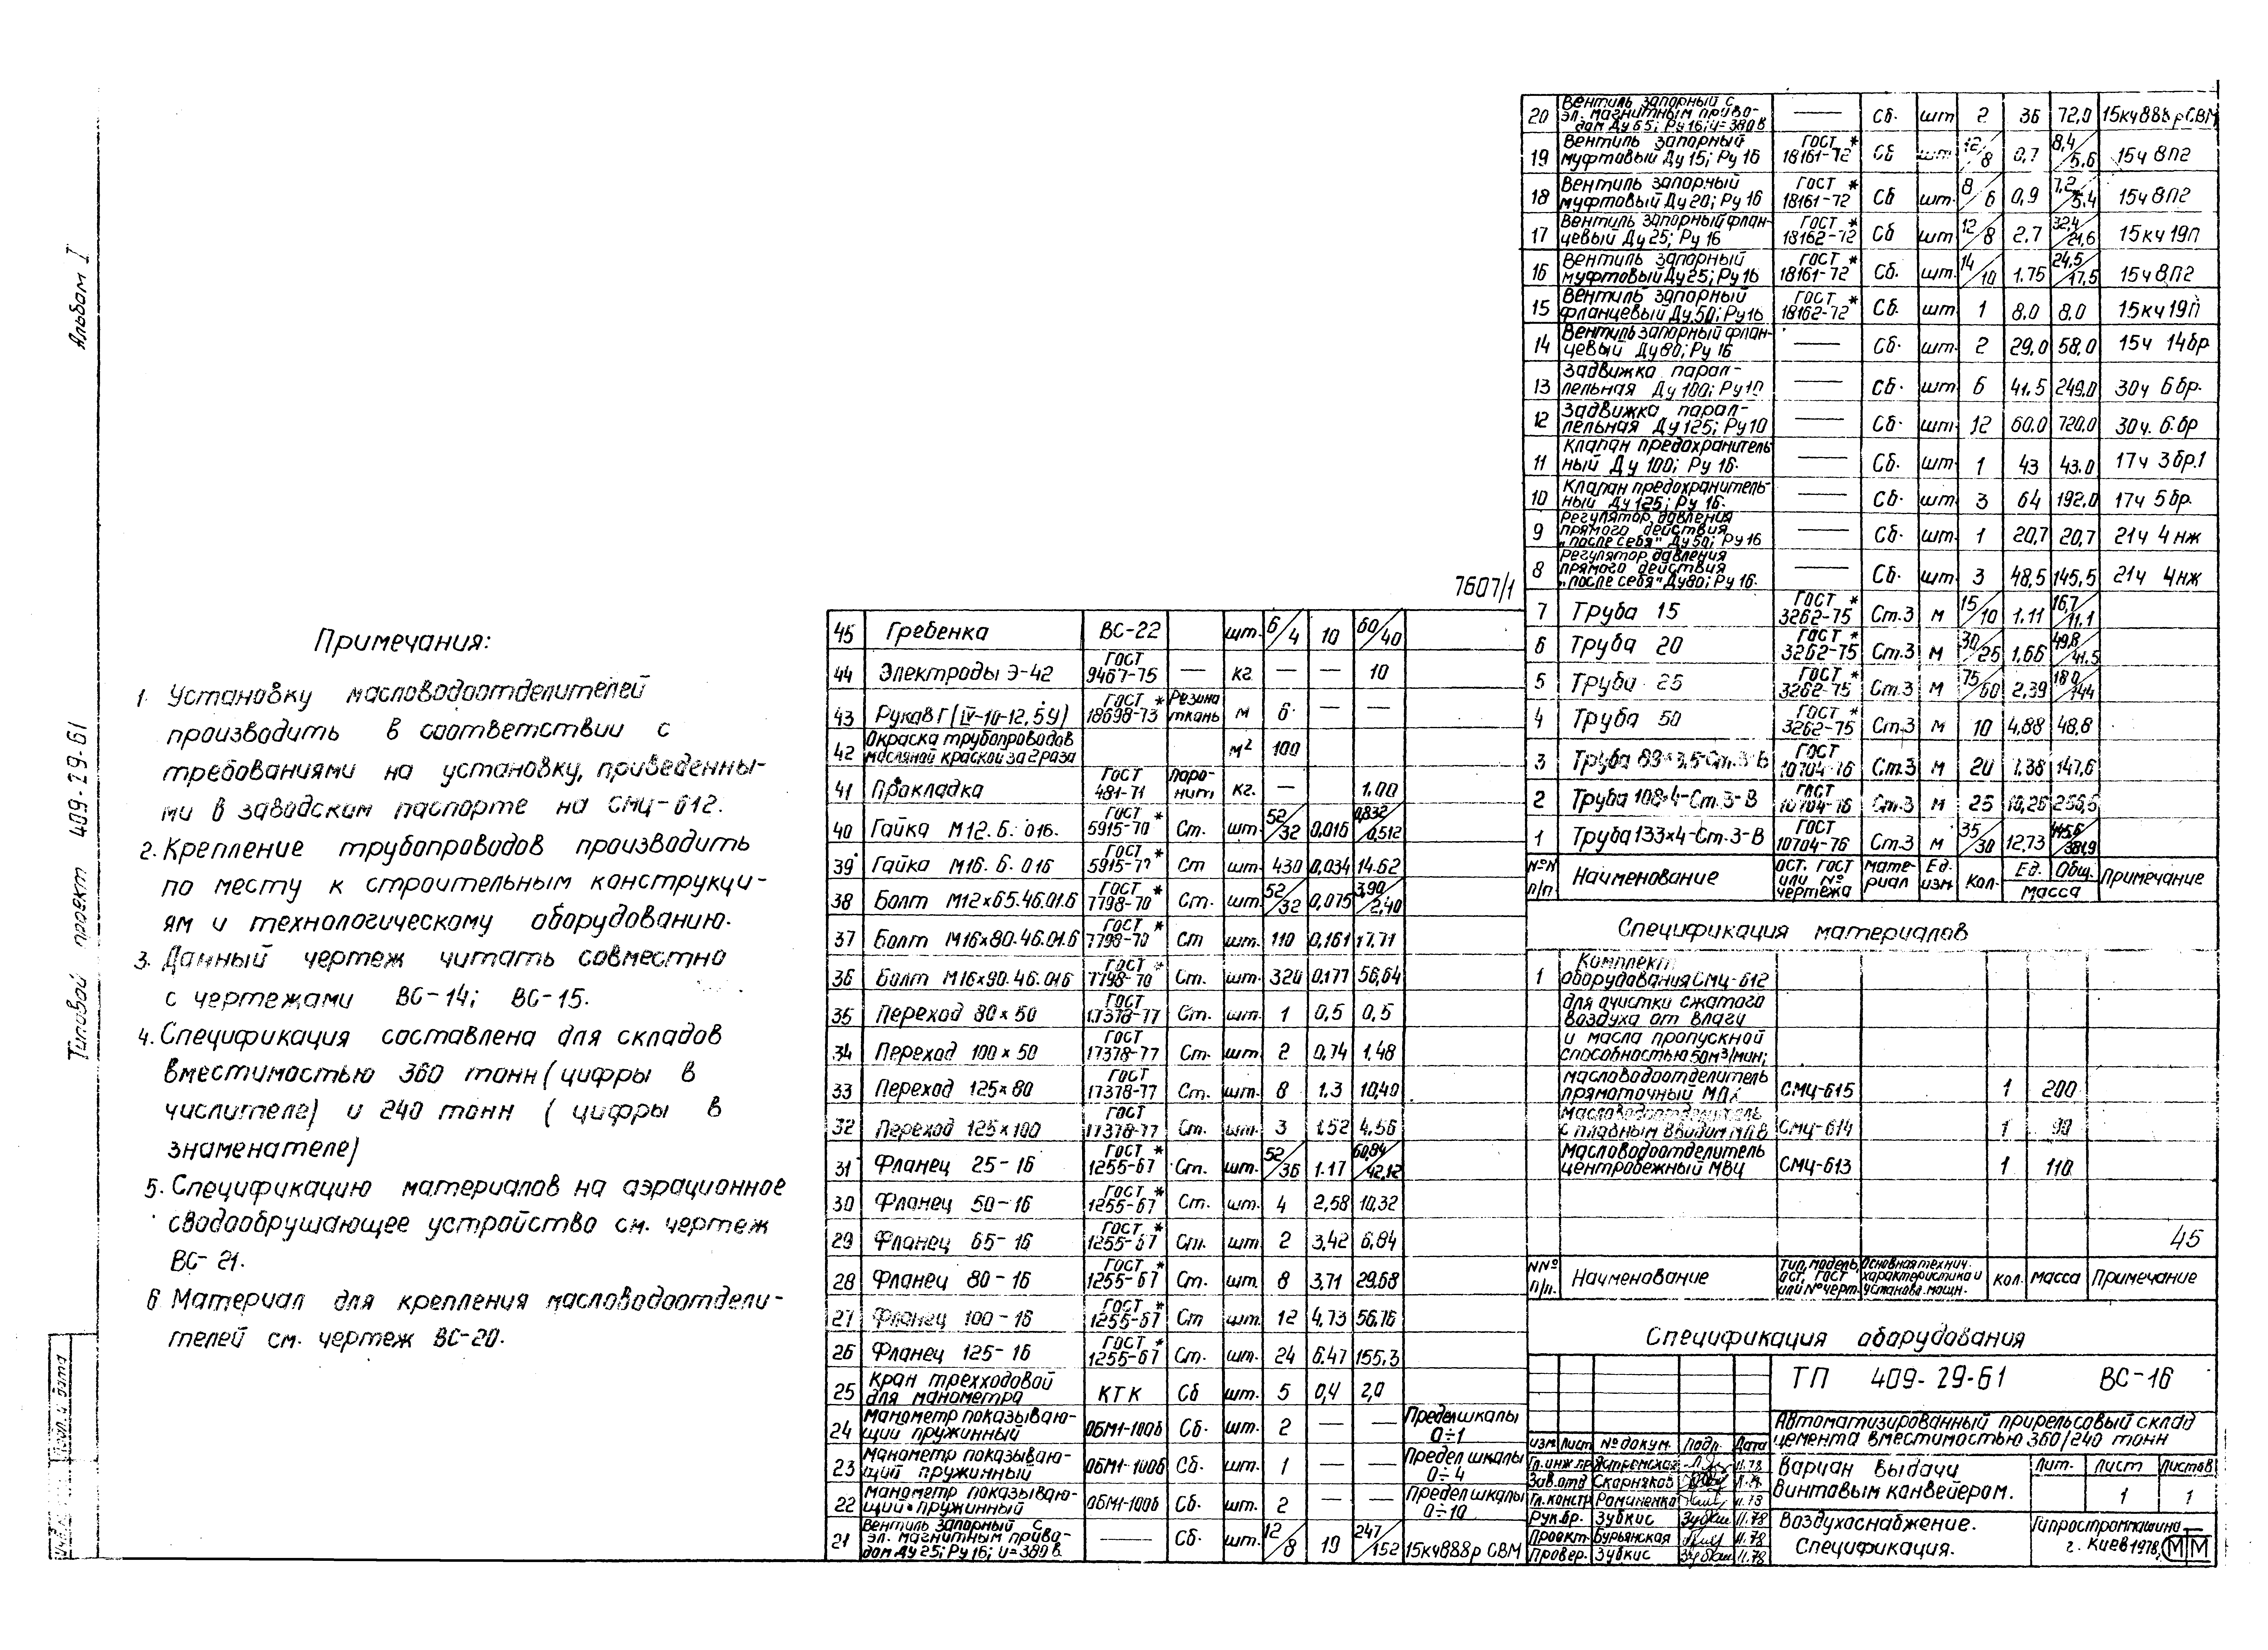 Альбом I
Типовой проект 409-29-61
Подп. и дата
Примечания:
1. Установку масловодоотделителей
производить в соответствии с
требованиями на установку, приведенны-
ми в заводском паспорте на СМЦ-612.
2. Крепление трубопроводов производить
по месту к строительным конструкци-
ям и технологическому оборудованию.
3. Данный чертеж читать совместно
с чертежами ВС-14; ВС-15.
4. Спецификация составлена для складов
вместимостью 360 тонн (цифры в
числителе) и 240 тонн ( цифры в
знаменателе)
5. Спецификацию материалов на аэрационное
сводообрушающее устройство см. чертеж
ВС-21.
6 Материал для крепления масловодоотдели-
телей см. чертеж ВС-20.
7607/1
45 Гребенка ВС-22 шт. 6/4 10 60/40
44 Электроды Э-42 ГОСТ 9467-75 — кг. — — 10
43 Рукав Г (IV-10-12,5У) ГОСТ * 18698-73 Резина ткань м 6 — —
42 Окраска трубопроводов масляной краской за 2 раза м² 100
41 Прокладка ГОСТ 481-71 паро-нит кг. — 1.00
40 Гайка М12.6.016. ГОСТ * 5915-70 Ст. шт. 52/32 0,016 0,832/0,512
39 Гайка М16.6.016 ГОСТ * 5915-70 Ст шт. 430 0,034 14.62
38 Болт М12×65.46.01.6 ГОСТ * 7798-70 Ст. шт. 52/32 0,075 3,90/2,40
37 Болт М16×80.46.01.6 ГОСТ * 7798-70 Ст шт. 110 0,161 17.71
36 Болт М16×90.46.016 ГОСТ * 7798-70 Ст. шт. 320 0,177 56,64
35 Переход 80×50 ГОСТ 17378-77 Ст. шт. 1 0,5 0,5
34 Переход 100×50 ГОСТ 17378-77 Ст. шт. 2 0,74 1.48
33 Переход 125×80 ГОСТ 17378-77 Ст. шт. 8 1.3 10,40
32 Переход 125×100 ГОСТ 17378-77 Ст. шт. 3 1.52 4.56
31 Фланец 25-16 ГОСТ * 1255-67 Ст. шт. 52/36 1.17 60,84/42,12
30 Фланец 50-16 ГОСТ * 1255-67 Ст. шт. 4 2,58 10,32
29 Фланец 65-16 ГОСТ * 1255-67 Ст. шт 2 3,42 6,84
28 Фланец 80-16 ГОСТ * 1255-67 Ст. шт. 8 3,71 29.68
27 Фланец 100-16 ГОСТ * 1255-67 Ст шт. 12 4,73 56.76
26 Фланец 125-16 ГОСТ * 1255-67 Ст. шт. 24 6.47 155,3
25 Кран трехходовой для манометра КТК Сб шт. 5 0,4 2,0
24 Манометр показываю-щий пружинный ОБМ1-100б Сб. шт. 2 — — Предел шкалы 0÷1
23 Манометр показываю-щий пружинный ОБМ1-100б Сб. шт. 1 — — Предел шкалы 0÷4
22 Манометр показываю-щий пружинный ОБМ1-100б Сб. шт. 2 — — Предел шкалы 0÷10
21 Вентиль запорный с эл. магнитным приво-дом Ду 25; Ру 16; u=380 в. — Сб. шт. 12/8 19 247/152 15кч888р СВМ
20 Вентиль запорный с эл. магнитным приво-дом Ду 65; Ру 16; u=380 в — Сб. шт 2 36 72,0 15кч888рСВМ
19 Вентиль запорный муфтовый Ду 15; Ру 16 ГОСТ * 18161-72 Сб шт 12/8 0,7 8,4/5,6 15ч 8п2
18 Вентиль запорный муфтовый Ду 20; Ру 16 ГОСТ * 18161-72 Сб шт. 8/6 0,9 7,2/5.4 15ч 8П2
17 Вентиль запорный флан-цевый Ду 25; Ру 16 ГОСТ * 18162-72 Сб шт 12/8 2.7 32,4/21,6 15кч 19п
16 Вентиль запорный муфтовый Ду 25; Ру 16 ГОСТ * 18161-72 Сб. шт. 14/10 1.75 24,5/17,5 15ч 8П2
15 Вентиль запорный фланцевый Ду 50; Ру 16 ГОСТ * 18162-72 Сб. шт 1 8.0 8.0 15кч 19п
14 Вентиль запорный флан-цевый Ду 80; Ру 16 — Сб. шт. 2 29,0 58,0 15ч 14бр
13 Задвижка парал-лельная Ду 100; Ру 10 — Сб. шт 6 41.5 249.0 30ч 6бр.
12 Задвижка парал-лельная Ду 125; Ру 10 — Сб. шт. 12 60.0 720,0 30ч. 6.бр
11 Клапан предохранитель-ный Ду 100; Ру 16. — Сб. шт. 1 43 43.0 17ч 3бр.1
10 Клапан предохранитель-ный Ду 125; Ру 16. — Сб. шт. 3 64 192.0 17ч 5бр.
9 Регулятор давления прямого действия „после себя" Ду 50; Ру 16 — Сб. шт. 1 20,7 20,7 21ч 4нж
8 Регулятор давления прямого действия „после себя" Ду 80; Ру 16. — Сб. шт. 3 48,5 145,5 21ч 4нж
7 Труба 15 ГОСТ * 3262-75 Ст.3 м 15/10 1.11 16,7/11.1
6 Труба 20 ГОСТ * 3262-75 Ст.3 м 30/25 1,66 49,8/41,5
5 Труба 25 ГОСТ * 3262-75 Ст.3 м 75/60 2,39 180/144
4 Труба 50 ГОСТ * 3262-75 Ст.3 м 10 4,88 48,8
3 Труба 89×3,5-Ст.3-В ГОСТ 10704-76 Ст.3 м 20 7.38 147,6
2 Труба 108×4-Ст.3-В ГОСТ 10704-76 Ст.3 м 25 10,26 256,5
1 Труба 133×4-Ст.3-В ГОСТ 10704-76 Ст.3 м 35/30 12,73 445,6/381,9
№№ п/п. Наименование ОСТ. ГОСТ или № чертежа Мате-риал Ед. изм. Кол. Ед. Общ. Масса Примечание
Спецификация материалов
1 Комплект
оборудования СМЦ-612
для очистки сжатого
воздуха от влаги
и масла пропускной
способностью 50м³/мин;
масловодоотделитель
прямоточный СМЦ-615 1 200
масловодоотделитель
с плавным вводом СМЦ-614 1 90
Масловодоотделитель
центробежный МВЦ СМЦ-613 1 110
45
NNº п/п. Наименование Тип, модель, ОСТ, ГОСТ или № черт. Основная технич. характеристика и установ. мощн. Кол. Масса Примечание
Спецификация оборудования
ТП 409-29-61 ВС-16
Автоматизированный прирельсовый склад
цемента вместимостью 360/240 тонн
Изм Лист № докум. Подп. Дата
Гл.инж.пр 11.78
Зав.отд Скорняков
Гл.констр Романенко 11.78
Рук.бр. Зубкис 11.78
Проект. Бурьянская 11.78
Провер. Зубкис 11.78
Вариан выдачи
винтовым конвейером.
Лит. Лист Листов
1 1
Воздухоснабжение.
Спецификация.
Гипростроммашина
г. Киев 1978.
ММ